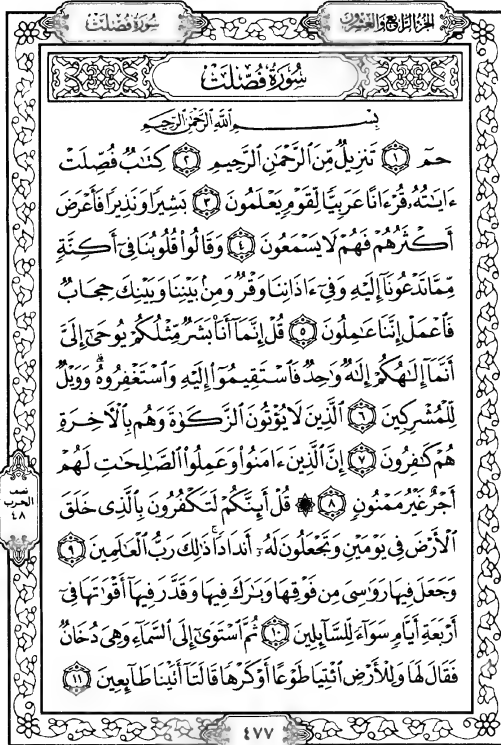 سُورَةُ فُصِّلَتْ
الجُزءُ الرَّابِعُ وَالعِشرُونَ
سُورَةُ فُصِّلَتْ
بِسْمِ اللَّهِ الرَّحْمَٰنِ الرَّحِيمِ
حمٓ ١ تَنزِيلٌ مِّنَ الرَّحْمَٰنِ الرَّحِيمِ ٢ كِتَٰبٌ فُصِّلَتْ
ءَايَٰتُهُۥ قُرْءَانًا عَرَبِيًّا لِّقَوْمٍ يَعْلَمُونَ ٣ بَشِيرًا وَنَذِيرًا فَأَعْرَضَ
أَكْثَرُهُمْ فَهُمْ لَا يَسْمَعُونَ ٤ وَقَالُوا۟ قُلُوبُنَا فِىٓ أَكِنَّةٍ
مِّمَّا تَدْعُونَآ إِلَيْهِ وَفِىٓ ءَاذَانِنَا وَقْرٌ وَمِنۢ بَيْنِنَا وَبَيْنِكَ حِجَابٌ
فَٱعْمَلْ إِنَّنَا عَٰمِلُونَ ٥ قُلْ إِنَّمَآ أَنَا۠ بَشَرٌ مِّثْلُكُمْ يُوحَىٰٓ إِلَىَّ
أَنَّمَآ إِلَٰهُكُمْ إِلَٰهٌ وَٰحِدٌ فَٱسْتَقِيمُوٓا۟ إِلَيْهِ وَٱسْتَغْفِرُوهُ ۗ وَوَيْلٌ
لِّلْمُشْرِكِينَ ٦ ٱلَّذِينَ لَا يُؤْتُونَ ٱلزَّكَوٰةَ وَهُم بِٱلْءَاخِرَةِ
هُمْ كَٰفِرُونَ ٧ إِنَّ ٱلَّذِينَ ءَامَنُوا۟ وَعَمِلُوا۟ ٱلصَّٰلِحَٰتِ لَهُمْ
أَجْرٌ غَيْرُ مَمْنُونٍ ٨ ۞ قُلْ أَئِنَّكُمْ لَتَكْفُرُونَ بِٱلَّذِى خَلَقَ
ٱلْأَرْضَ فِى يَوْمَيْنِ وَتَجْعَلُونَ لَهُۥٓ أَندَادًا ۚ ذَٰلِكَ رَبُّ ٱلْعَٰلَمِينَ ٩
وَجَعَلَ فِيهَا رَوَٰسِىَ مِن فَوْقِهَا وَبَٰرَكَ فِيهَا وَقَدَّرَ فِيهَآ أَقْوَٰتَهَا فِىٓ
أَرْبَعَةِ أَيَّامٍ سَوَآءً لِّلسَّآئِلِينَ ١٠ ثُمَّ ٱسْتَوَىٰٓ إِلَى ٱلسَّمَآءِ وَهِىَ دُخَانٌ
فَقَالَ لَهَا وَلِلْأَرْضِ ٱئْتِيَا طَوْعًا أَوْ كَرْهًا قَالَتَآ أَتَيْنَا طَآئِعِينَ ١١
نصف
الحزب
٤٨
٤٧٧